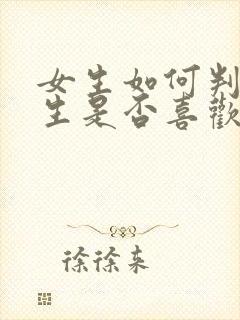 女生如何判
生是否喜歡
徐徐来